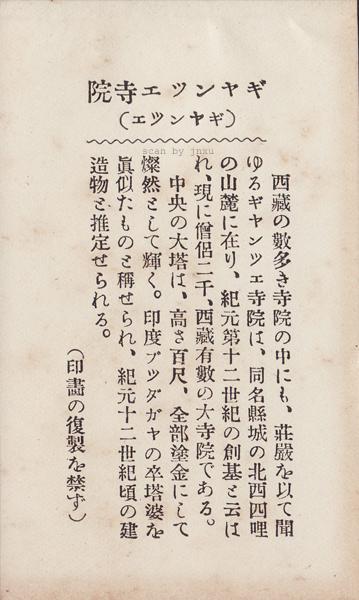 ギヤンツエ寺院
(ギヤンツエ)
scan by jnxu
西藏の數多き寺院の中にも、莊嚴を以て聞
ゆるギヤンツエ寺院は、同名縣城の北西四哩
の山麓に在り、紀元第十二世紀の創基と云は
れ、現に僧侶二千、西藏有數の大寺院である。
中央の大塔は、高さ百尺、全部塗金にして
燦然として輝く。印度ブツダガヤの卒塔婆を
眞似たものと稱せられ、紀元十二世紀頃の建
造物と推定せられる。
(印畫の復製を禁ず)